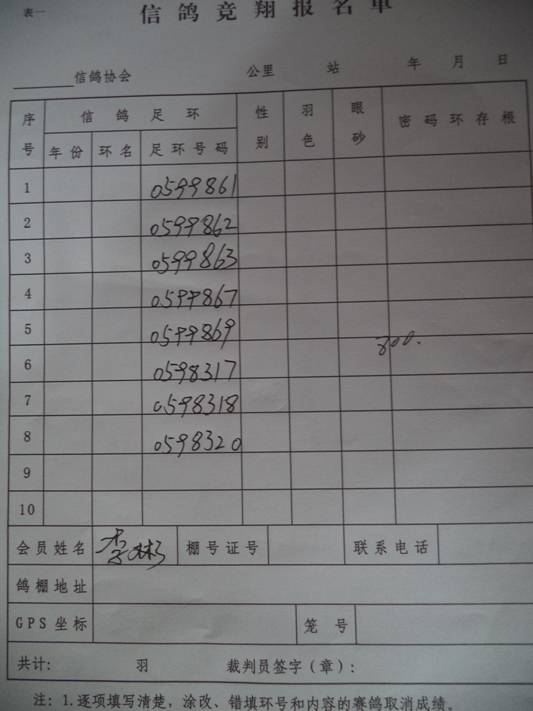 表一
信鸽竞翔报名单
信鸽协会 公里 站 年 月 日
序号 信鸽足环 性别 羽色 眼砂 密码环存根
年份 环名 足环号码
1 0599861
2 0599862
3 0599863
4 0599867
5 0599869
800.
6 0598317
7 0598318
8 0598320
9
10
会员姓名 李彬 棚号证号 联系电话
鸽棚地址
GPS坐标 笼号
共计: 羽 裁判员签字(章):
注: 1.逐项填写清楚, 涂改、错填环号和内容的赛鸽取消成绩。